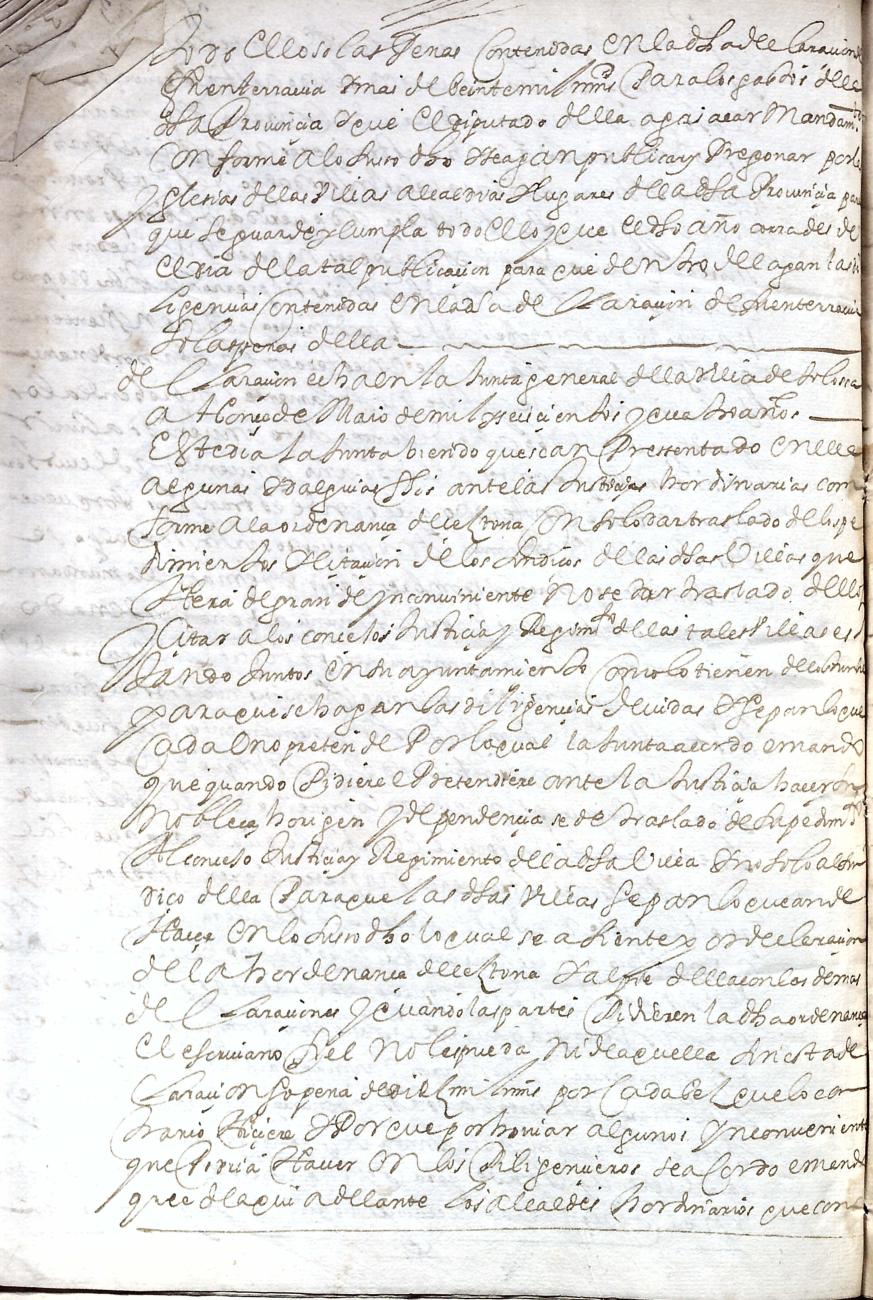 todo ello so las Penas Contenidas en la dha declaracion de
fuenterravia y mas de beinte mill mrs Para los gastos de la
dha Provincia y que el diputado della aga sacar Mandamto
Conforme a lo suso dho y hagan publicar y Pregonar por las
yglesias de las Villas alcaldias y lugares de la dha Provincia para
que se guarde y Cumpla todo ello y que el dho año corra desde
el dia de la tal publicacion para que dentro del agan las di
ligencias Contenidas en la dha declaracion de fuenterravia
So las penas della
declaracion echa en la Junta general de la Villa de tolosa
a honce de Maio de mil y seicientos y quatro años
Este dia la Junta biendo que se an Presentado en ella
algunas Ydalguias ante las Justicias hordinarias con
forme a la ordenança de cestona Con solo dar traslado de los pe
dimientos y Citacion de los sindicos de las dhas Villas que
hera de gran de ynconviniente No se dar traslado dello
y Citar a los concejos Justicia y Regimto de las tales Villas es
tando Juntos en su ayuntamiento Como lo tienen de costumbre
para que se hagan las diligencias devidas y Sepan lo que
Cada Uno pretende Por lo qual la Junta acordo e mando
que quando Pidiere e Pretendiere ante la Justicia hacer su
Nobleça horigen y dependencia se de traslado de su pedimto
Al concejo Justicia y Regimiento de la dha Villa y no solo al sin
dico della Para que las dhas Villas Sepan lo que an de
Hacer en lo suso dho lo qual se asiente por declaracion
de la hordenança de cestona y al pie della con las demas
declaraciones y quando las partes Pidieren la dha ordenança
el escrivano fiel No les pueda Ni de aquella sin esta de
claracion so pena de diez mil mrs por Cada bez que lo con
trario hiciere y Porque por obviar algunos ynconvenientes
que Podria Haver en los Diligencieros se acordo e mando
que de aqui adelante los alcaldes hordinarios que con